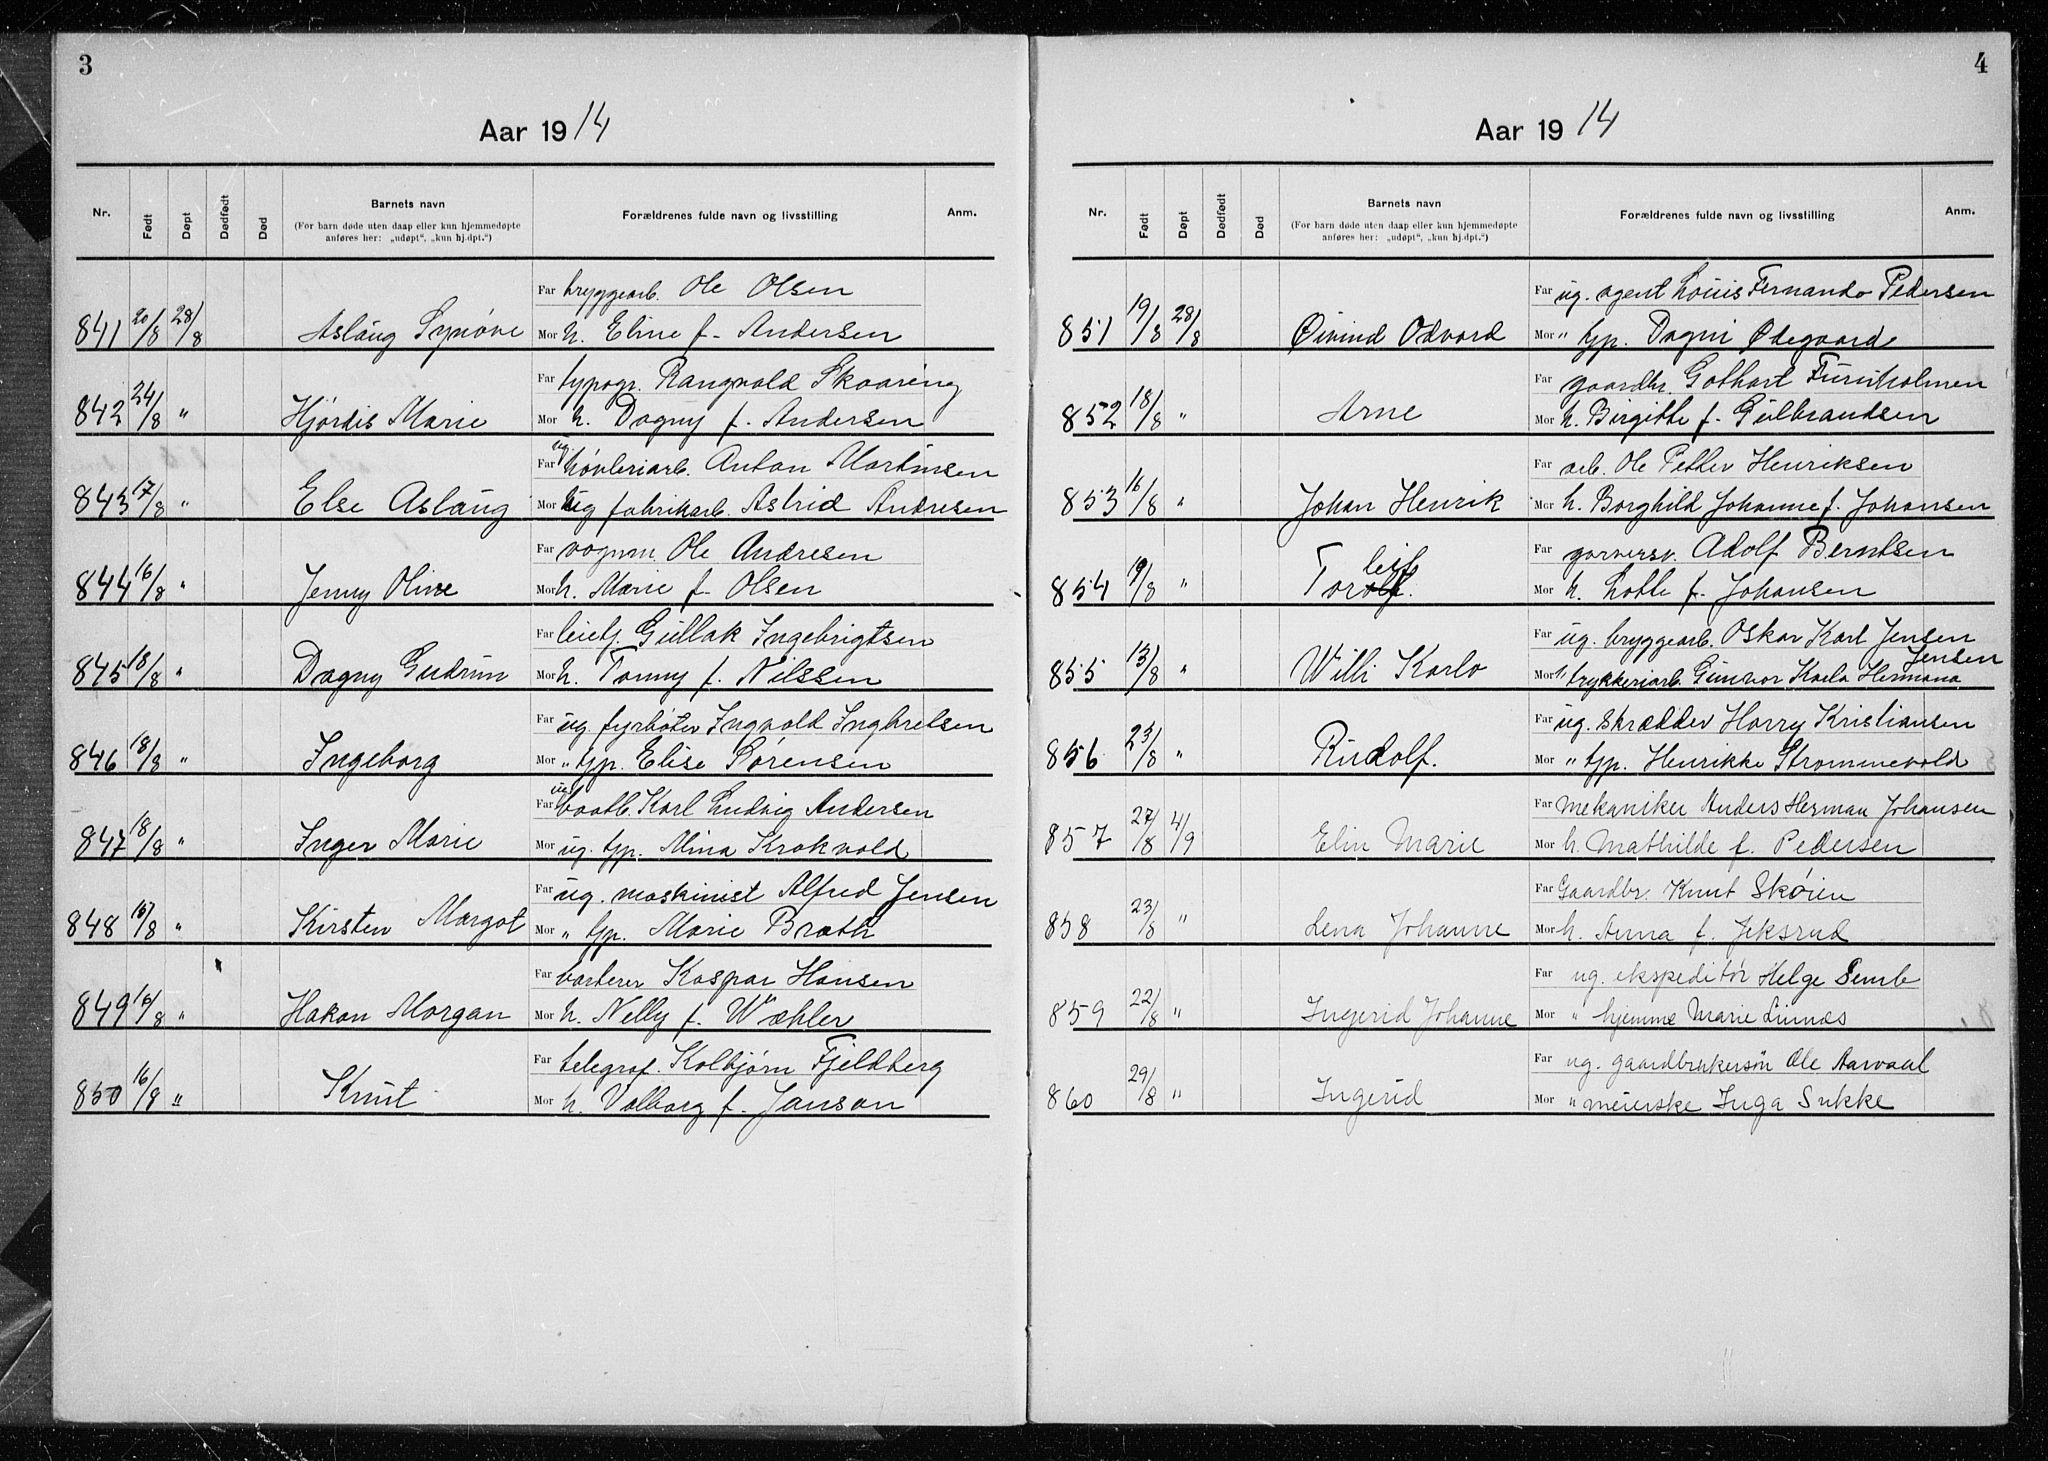 3
Aar 1914
Nr. Født Døpt Dødfødt Død Barnets navn Forældrenes fulde navn og livsstilling Anm.
(For barn døde uten daap eller kun hjemmedøpte
anføres her: „udøpt", „kun hj.dpt.")
Far bryggearb. Ole Olsen
841 20/8 28/8 Aslaug Synøve Mor h. Eline f. Andersen
Far typogr. Rangvald Skaaring
842 24/8 " Hjørdis Marie Mor h. Dagny f. Andersen
Far ug høvleriarb. Anton Martinsen
843 17/8 " Else Aslaug Mor ug fabrikarb. Astrid Andresen
Far vognm. Ole Andresen
844 16/8 " Jenny Oline Mor h. Marie f. Olsen
Far leiekj. Gullak Ingebrigtsen
845 18/8 " Dagny Gudrun Mor h. Tonny f. Nilssen
Far ug. fyrbøter Ingvald Ingbretsen
846 18/8 " Ingeborg Mor " tjp. Elise Sørensen
Far ug baatb. Karl Ludvig Andersen
847 18/8 " Inger Marie Mor ug. tjp. Mina Krokvold
Far ug. maskinist Alfred Jensen
848 /8 " Kirsten Margot Mor " tjp. Marie Brath
Far barberer Kaspar Hansen
849 16/8 " Hakon Morgan Mor h. Nelly f. Wæhler
Far telegraf. Kolbjørn Fjeldberg
850 16/8 " Knut Mor h. Valborg f. Janson
4
Aar 1914
Nr. Født Døpt Dødfødt Død Barnets navn Forældrenes fulde navn og livsstilling Anm.
(For barn døde uten daap eller kun hjemmedøpte
anføres her: „udøpt", „kun hj.dpt.")
Far ug. agent Louis Fernando Pedersen
851 19/8 28/8 Øivind Odvard Mor " tjp. Dagni Ødegaard
Far gaardbr. Gothart Furuholmen
852 18/8 " Arne Mor h. Birgitte f. Gulbrandsen
Far arb. Ole Petter Henriksen
853 16/8 " Johan Henrik Mor h. Borghild Johanne f. Johansen
leif
Far garversv. Adolf Berntsen
854 19/8 " Torolf. Mor h. Lotte f. Johansen
Far ug. bryggearb. Oskar Karl Jensen
Jensen
855 13/8 " Willi Karlo Mor " trykkeriarb. Gunvor Karla Hermana
Far ug. skrædder Harry Kristiansen
856 23/8 " Rudolf. Mor " tjp. Henrikke Strømmevold
Far mekaniker Anders Herman Johansen
857 27/8 4/9 Elin Marie Mor h. Mathilde f. Pedersen
Far Gaardbr. Knut Skøien
858 23/8 " Lena Johanne Mor h. Anna f. Jeksrud
Far ug. ekspeditør Helge Semb
859 22/8 " Ingerid Johanne Mor " hjemme Marie Liunæs
Far ug. gaardbrukersøn Ole Aarvaal
860 29/8 " Ingerid Mor " meierske Inga Sukke